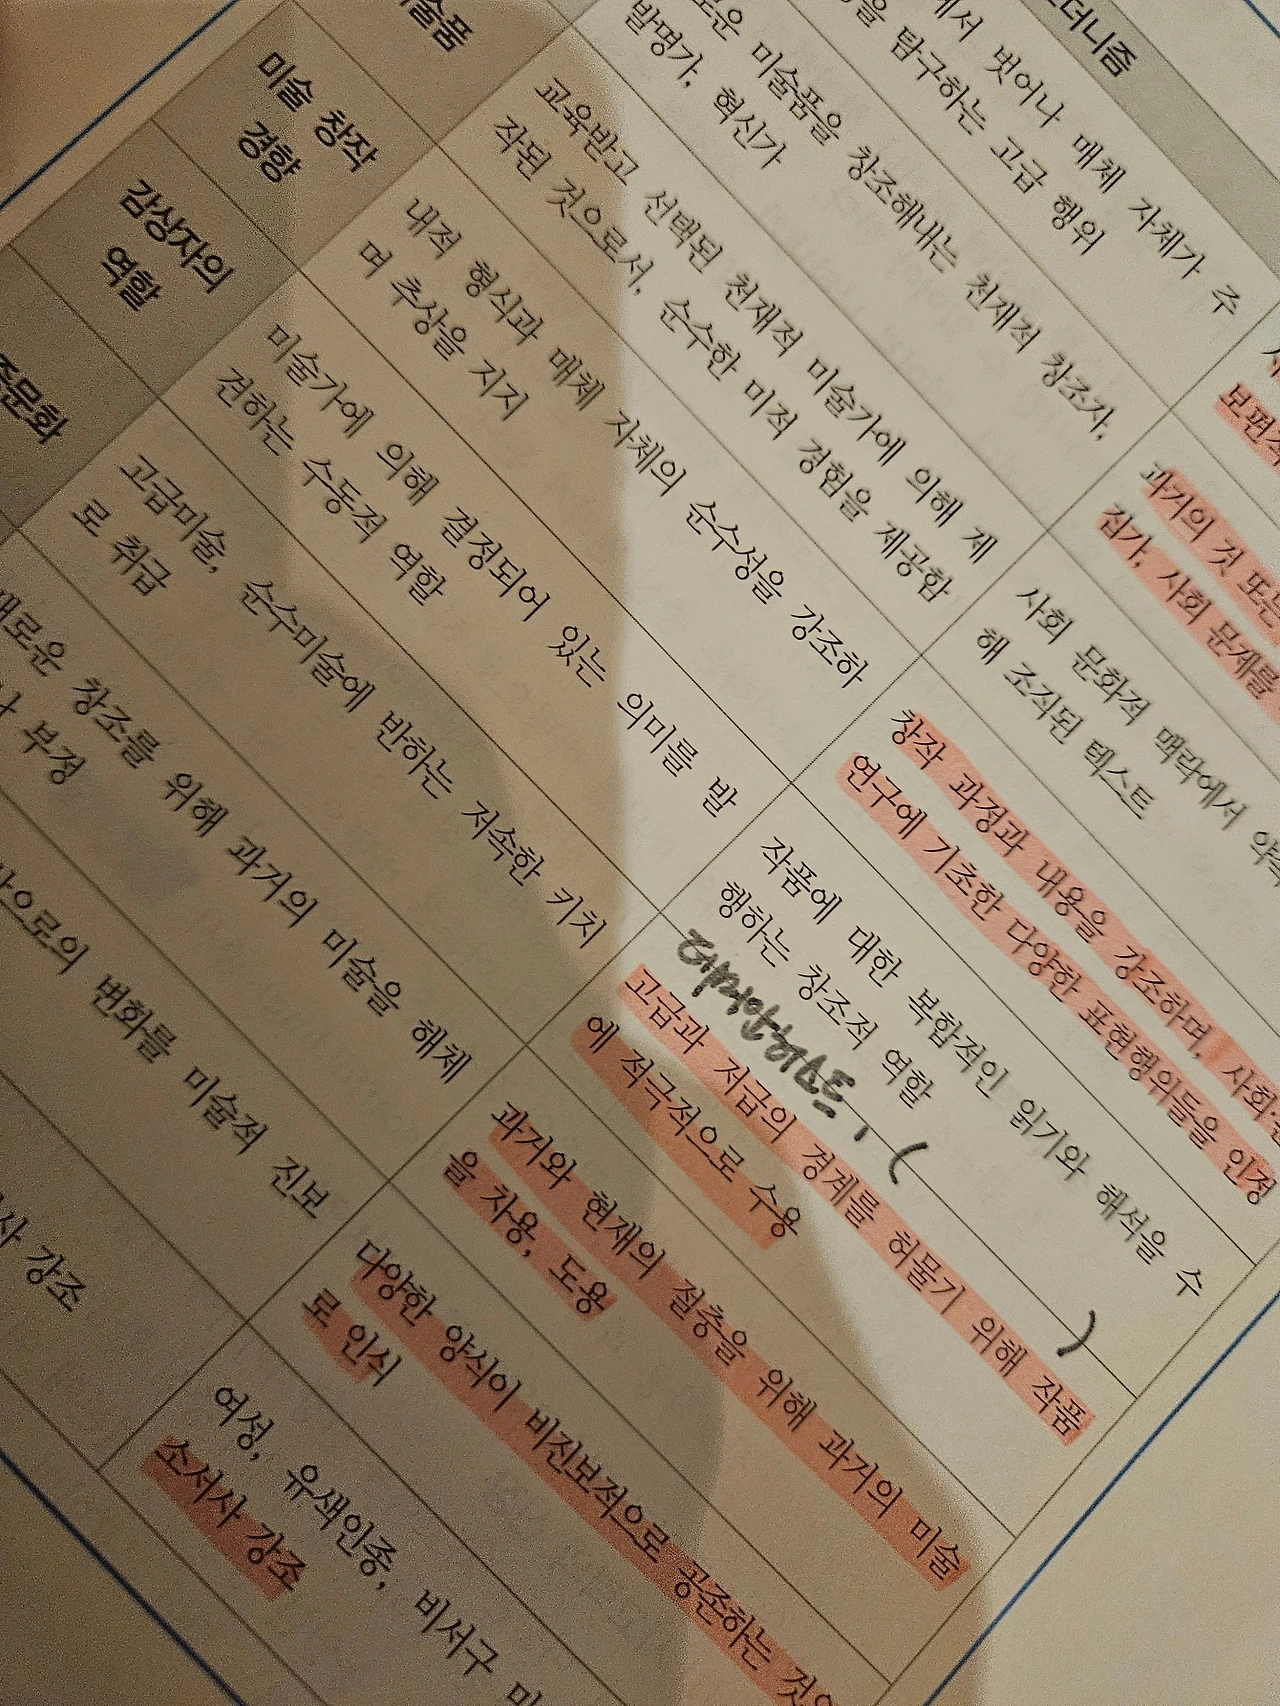 더니즘
에서 벗어나 매체 자체가 주
을 탐구하는 고급 행위
로운 미술품을 창조해내는 천재적 창조자,
발명가, 혁신가
보편적
과거의 것 또는
집가, 사회 문제를
술품
교육받고 선택된 천재적 미술가에 의해 제
작된 것으로서, 순수한 미적 경험을 제공함
사회 문화적 맥락에서
해 조직된 텍스트
미술 창작
경향
내적 형식과 매체 자체의 순수성을 강조하
며 추상을 지지
창작 과정과 내용을 강조하며, 사회·
연구에 기초한 다양한 표현행위들을 인정
감상자의
역할
미술가에 의해 결정되어 있는 의미를 발
견하는 수동적 역할
작품에 대한 복합적인 읽기와 해석을 수
행하는 창조적 역할
데미안허스트, ( )
중문화
고급미술, 순수미술에 반하는 저속한 키치
로 취급
고급과 저급의 경계를 허물기 위해 작품
에 적극적으로 수용
새로운 창조를 위해 과거의 미술을 해체
나 부정
과거와 현재의 절충을 위해 과거의 미술
을 차용, 도용
으로의 변화를 미술적 진보
다양한 양식이 비진보적으로 공존하는 것으
로 인식
사 강조
여성, 유색인종, 비서구
소서사 강조